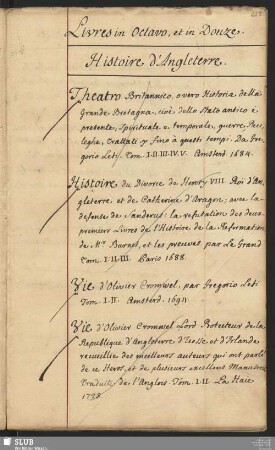 Livres in Octavo, et in Douze.
Histoire d'Angleterre.
Theatro Britannico, overo Historia della
Grande Bretagna, cioè, dello Stato antico è
presente, Spirituale e temporale, guerre,
Trattati &c. fino à questi tempi. Da Gre-
gorio Leti. Tom. I. II. III. IV. V. Amsterd. 1684.
Histoire du Divorce de Henry VIII. Roi d'An-
gleterre et de Catherine d'Aragon; avec la
defense de Sanderus: la refutation des deux
premiers Livres de l'Histoire de la Reformation
de Mr. Burnet, et les preuves par Le Grand
Tom. I. II. III. Paris 1688.
Vie d'Olivier Cromwel, par Gregorio Leti
Tom. I. II. Amsterd. 1694
Vie d'Olivier Cromwel Lord Protecteur de la
Republique d'Angleterre d'Ecosse et d'Irlande
recueillie des meilleurs auteurs qui ont parlé
de ce Heros, et de plusieurs excellens Manuscrits
Traduite de l'Anglois. Tom. I. II. La Haie
SLUB
Wir führen Wissen.